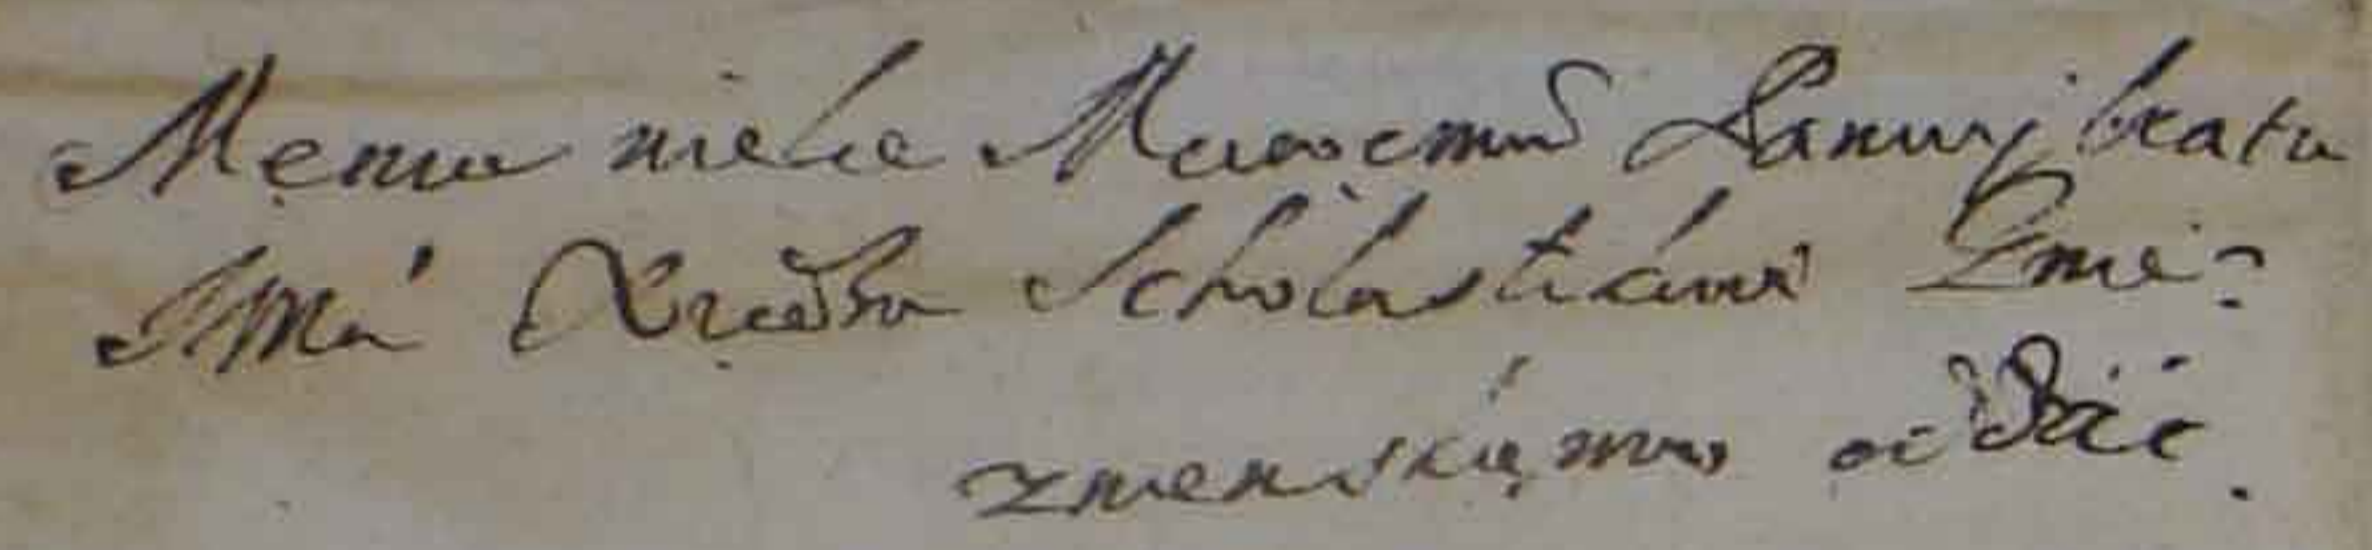 Memu wielce Mciwemu Panu y bratu
JMci Xiędzu Scholastikowi Gnie-
znienskiemu oddać.